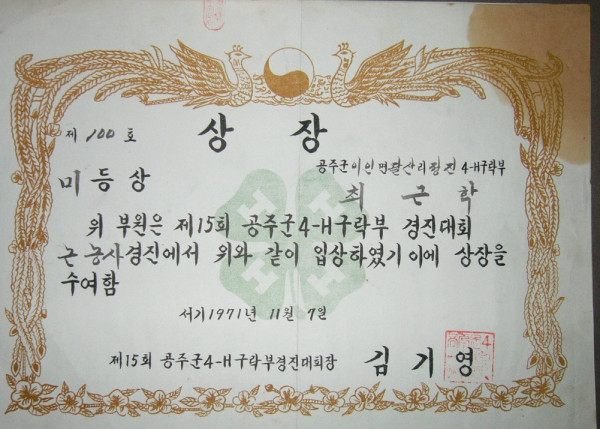 제 100 호
상 장
공주군 이인면 달산리 점진 4-H구락부
미등상
최 근 학
위 부원은 제15회 공주군4-H구락부 경진대회
근 농사경진에서 위와 같이 입상하였기 이에 상장을
수여함
서기1971년 11월 7일
제15회 공주군4-H구락부경진대회장 김기영
H H H H